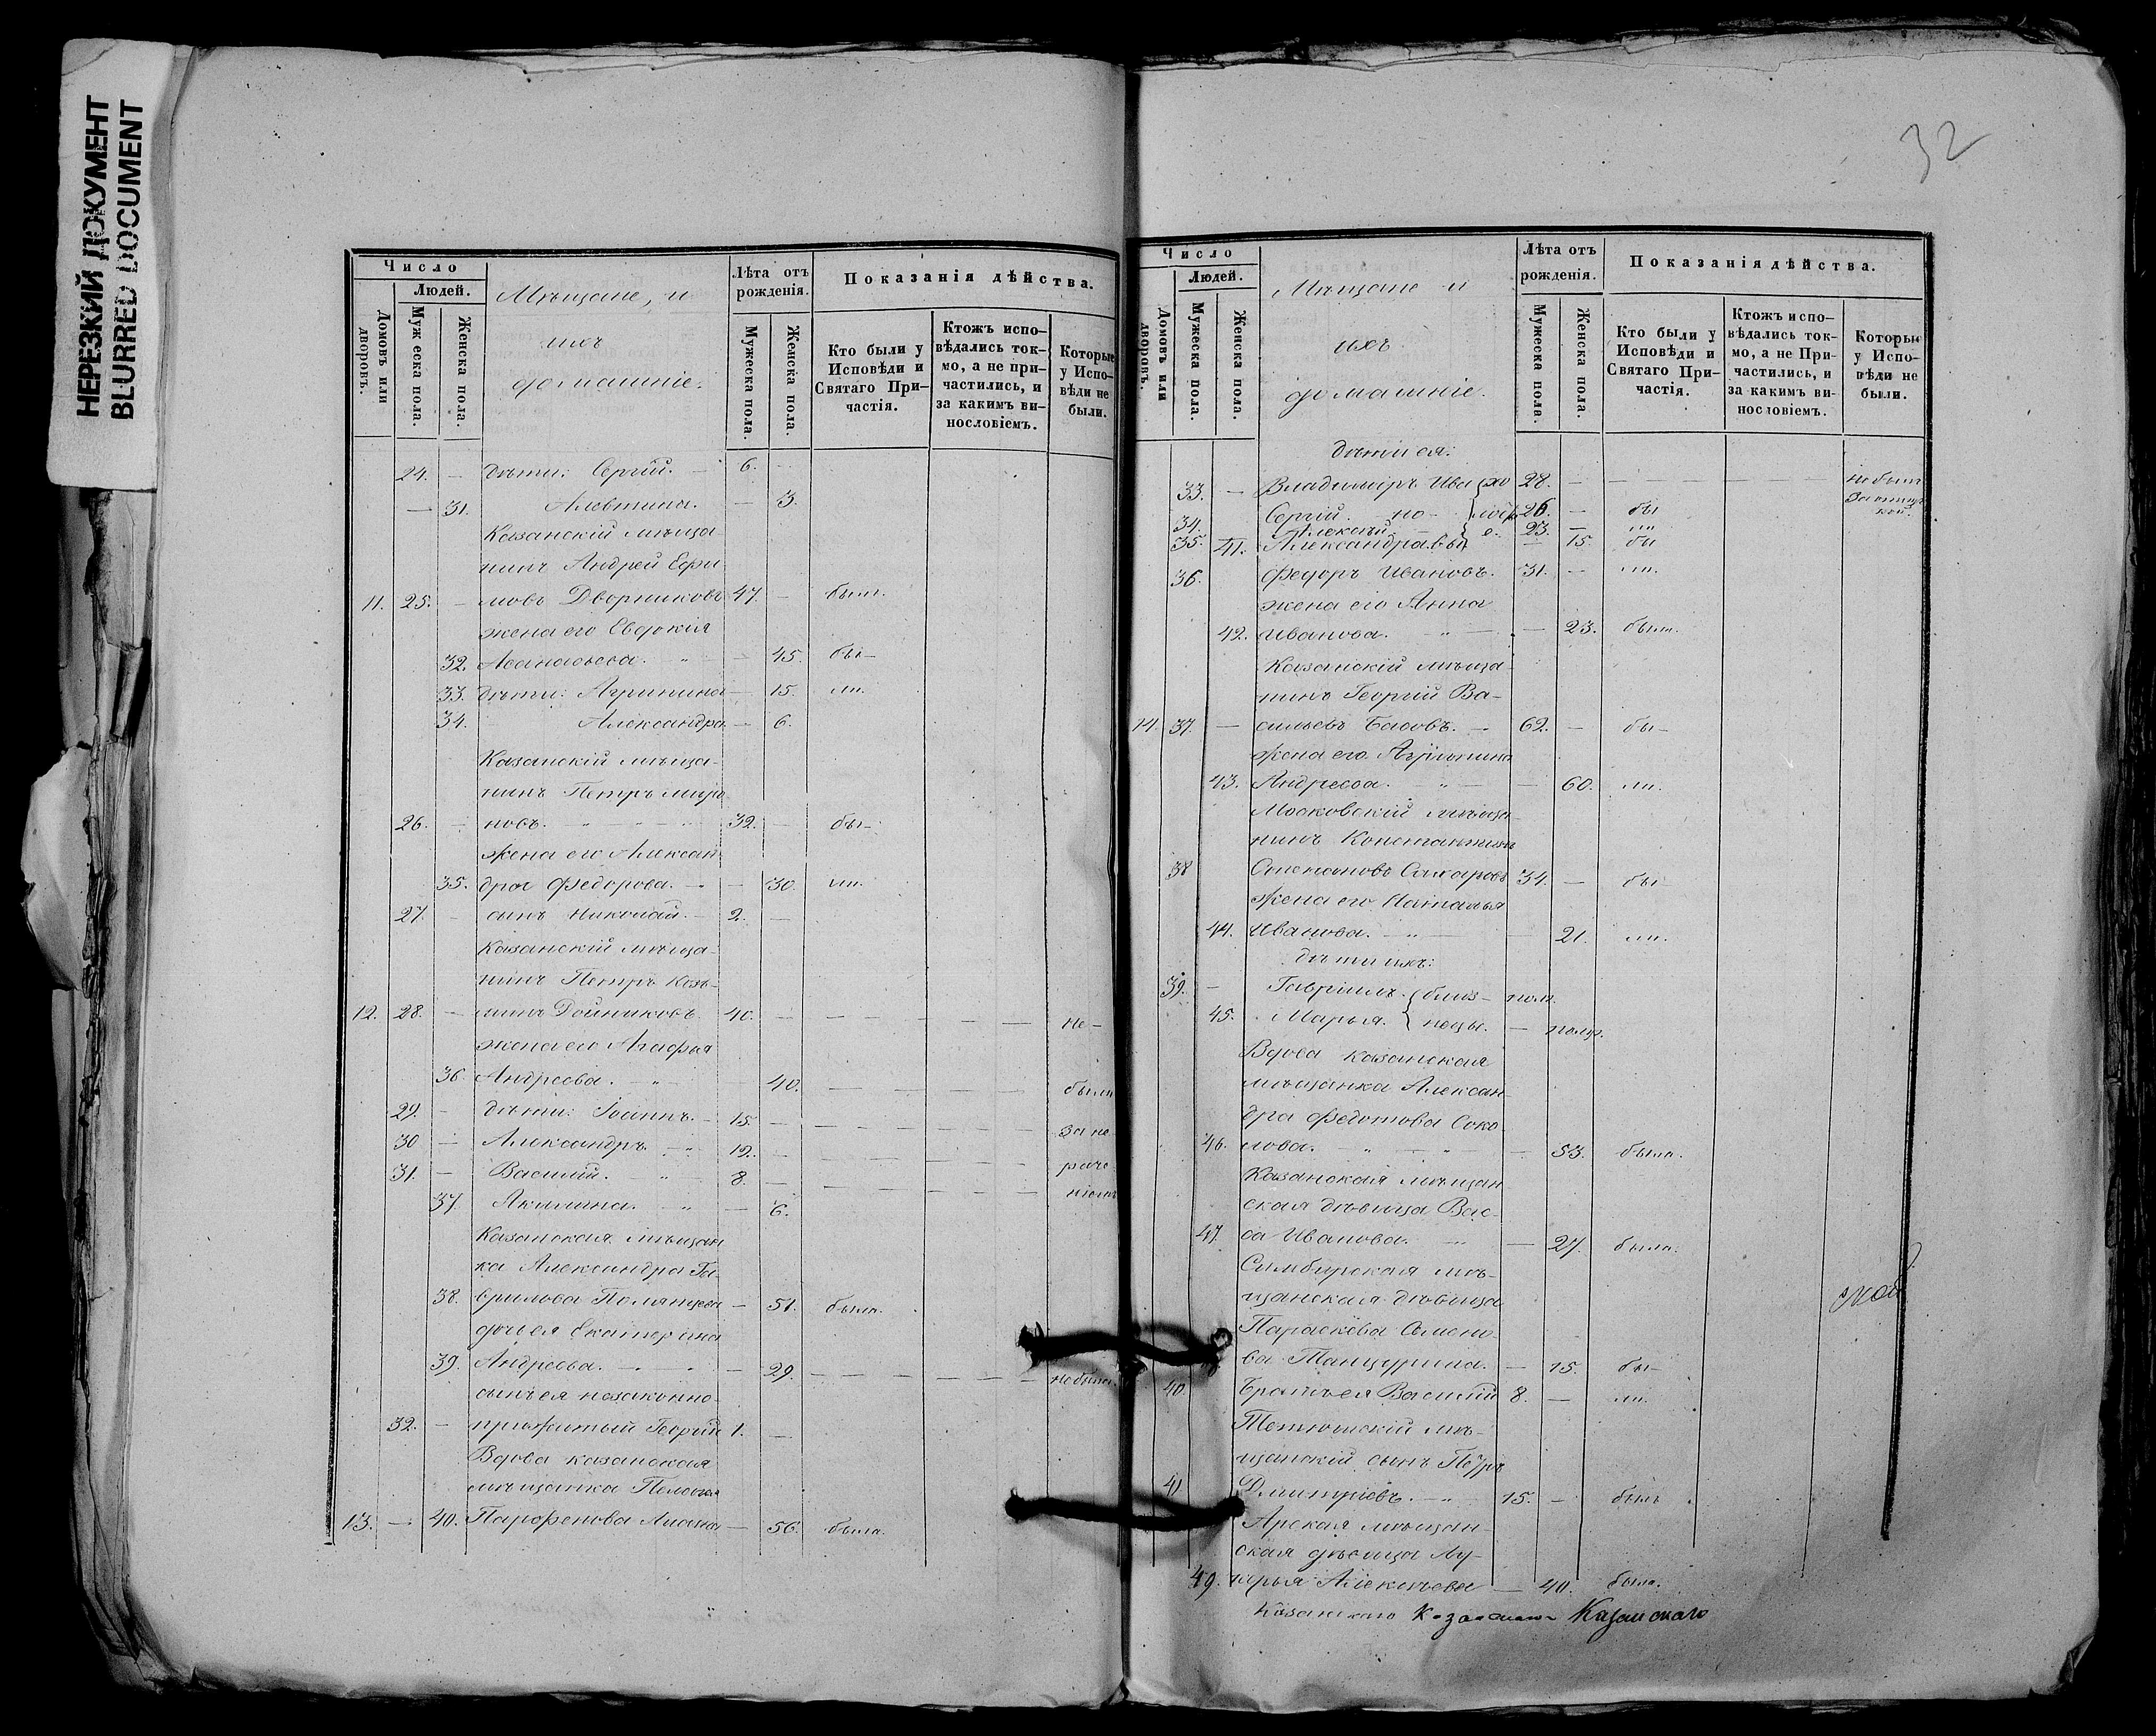 НЕРЕЗКИЙ ДОКУМЕНТ
BLURRED DOCUMENT
Число
Людей.
Домовъ или дворовъ.
Мужеска пола.
Женска пола.
Мѣщане, и
ихъ
домашніе.
Лѣта отъ рожденія.
Мужеска пола.
Женска пола.
Показанія дѣйства.
Кто были у Исповѣди и Святаго Причастія.
Ктожъ исповѣдались токмо, а не причастились, и за какимъ винословіемъ.
Которые у Исповѣди не были.
24. — дѣти: Сергій. — 6. —
— 31. Алевтина. — 3.
Казанскій мѣща-
нинъ Андрей Ефи
11. 25. — мовъ Дворниковъ 47. — былъ.
жена его Евдокія
32. Аѳанасьева. — 45. бы—
33. дѣти: Агрипина — 15. ли.
34. Александра — 6.
Казанскій мѣща-
нинъ Петръ Миро
26. — новъ. 32. — бы—
жена его Алексан
35. дра Федорова. — 30. ли.
27. — сынъ Николай. — 2. —
Казанскій мѣща-
нинъ Петръ Козь-
12. 28. — минъ Дойниковъ 40. — не—
жена его Агафья
36. Андреева. — 40. — были
29. — дѣти: Іоаннъ. — 15. — за не
30 — Александръ. 12. — раче
31. — Василій. 8. — ніемъ
37. Акилина. — 6.
Казанская мѣщан
ка Александра Га-
38. врилова — 51. была.
дочь ея Екатерина
39. Андреева. — 29. — не была.
сынъ ея незаконно-
32. — прижитый Георгій 1. —
Вдова казанская
мѣщанка Пелагея
13. — 40. Парфенова — 56. была.
32
Число
Людей.
Домовъ или дворовъ.
Мужеска пола.
Женска пола.
Мѣщане и
ихъ
домашніе.
Лѣта отъ рожденія.
Мужеска пола.
Женска пола.
Показанія дѣйства.
Кто были у Исповѣди и Святаго Причастія.
Ктожъ исповѣдались токмо, а не Причастились, и за какимъ винословіемъ.
Которые у Исповѣди не были.
дѣти ея:
33. — Владиміръ Ива 28. — не былъ
34. Сергій. но- 26. — бы
35. Алексѣй 23. — ли
41. Александра вы — 15. бы
36. Федоръ Ивановъ. 31. — ли.
жена его Анна
42. Иванова. — 23. были.
Казанскій мѣща-
нинъ Георгій Ва-
14. 37. — сильевъ 62. — бы—
жена его Агрипина
43. Андреева. — 60. ли.
Московскій мѣща-
нинъ Константинъ
38 Степановъ Сахаровъ 34. — бы—
жена его Наталья
44. Иванова. — 21. ли.
дѣти ихъ:
39. — Гавріилъ. близ- пол.
45. Марья. нецы. — полг.
Вдова казанская
мѣщанка Алексан
дра Федотова Соко-
46. лова. — 53. была.
Казанская мѣщан
ская дѣвица Вас-
47. са Иванова. — 27. была.
Симбирская мѣ-
щанская дѣвица
Параскева Семено-
ва Танцурина. — 15. бы—
40. братъ ея Василій 8. — ли.
Тетюшскій мѣ-
щанскій сынъ Петръ
41 Дмитріевъ. 15. — былъ
Арская мѣщан-
ская дѣвица Лу-
49. керья Алексѣева — 40. была.
Казанскаго Казанскаго Казанскаго